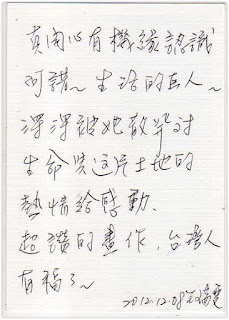 真開心有機緣認識
阿諾~ 生活的巨人~
深深被她散發對
生命與這片土地的
熱情給感動.
超讚的畫作, 台灣人
有福了~
2012.12.08